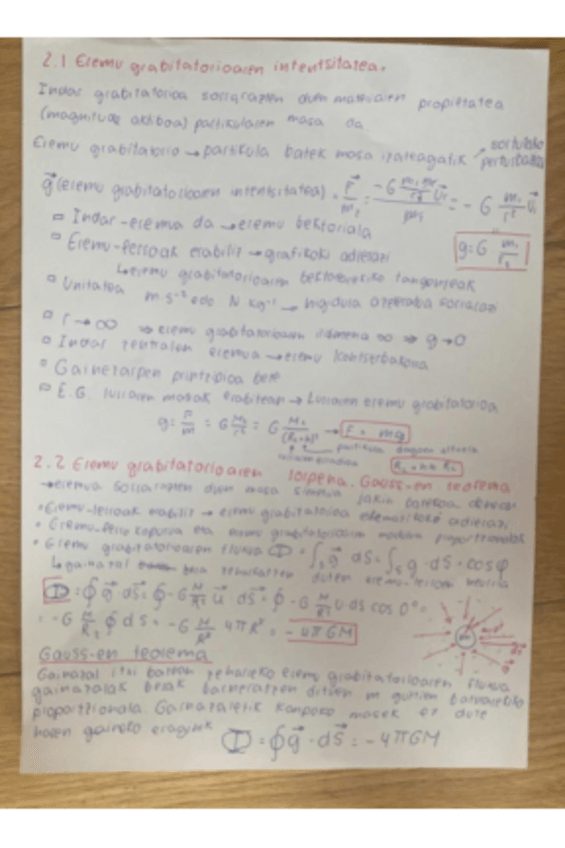 2.1 Eremu grabitatorioaren intentsitatea.
Indar grabitatorioa sorrarazten duen materiaren propietatea
(magnitude aktiboa) partikularen masa da
Eremu grabitatorio → partikula batek masa izateagatik → sorturiko perturbazioa
g⃗ (eremu grabitatorioaren intentsitatea) = F⃗/m₂ = = - G m₁/r² u⃗r
▫ Indar-eremua da → eremu bektoriala
g = G m₁/r²
▫ Eremu-lerroak erabiliz → grafikoki adierazi
↳ eremu grabitatorioaren tangenteak
▫ Unitatea m s⁻² edo N kg⁻¹ →
▫ r → ∞ ⇒ eremu grabitatorioaren ∞ ⇒ g → 0
▫ Indar zentralen eremua → eremu kontserbakorra
▫ Gainezarpen printzipioa bete
▫ E.G. lurraren masak erabitean → Lurraren eremu grabitatorioa
g = F/m = G M/r² = G → F = mg
partikula dagoen altuera
2.2 Eremu grabitatorioaren iorpena. Gauss-en teorema
→ eremua sorrarazten duen masa simetria jakin batekoa denean
▫ Eremu-lerroak erabiliz → eremu grabitatorioa adierazi
▫ Eremu-lerro kopurua eta eremu grabitatorioaren modulua proportzionalak
▫ Eremu grabitatorioaren fluxua Φ = ∫s g⃗ dS⃗ = ∫s g · dS · cos φ
↳ gainazal zeharkatzen duten eremu-lerroen
Φ = ∮ g⃗ · dS⃗ = ∮ - G M/R² u⃗ dS⃗ = ∮ - G M/R² u · dS cos 0° =
= - G M/R² ∮ dS = - G M/R² 4πR² = - 4πGM
Gauss-en teorema
Gainazal itxi baten zeharreko eremu grabitatorioaren fluxua
gainazalak berak barneratzen dituen m guztien baturarekiko
proportzionala. Gainazaletik kanpoko masek ez dute
haren gaineko eraginik Φ = ∮ g⃗ · dS⃗ = - 4πGM